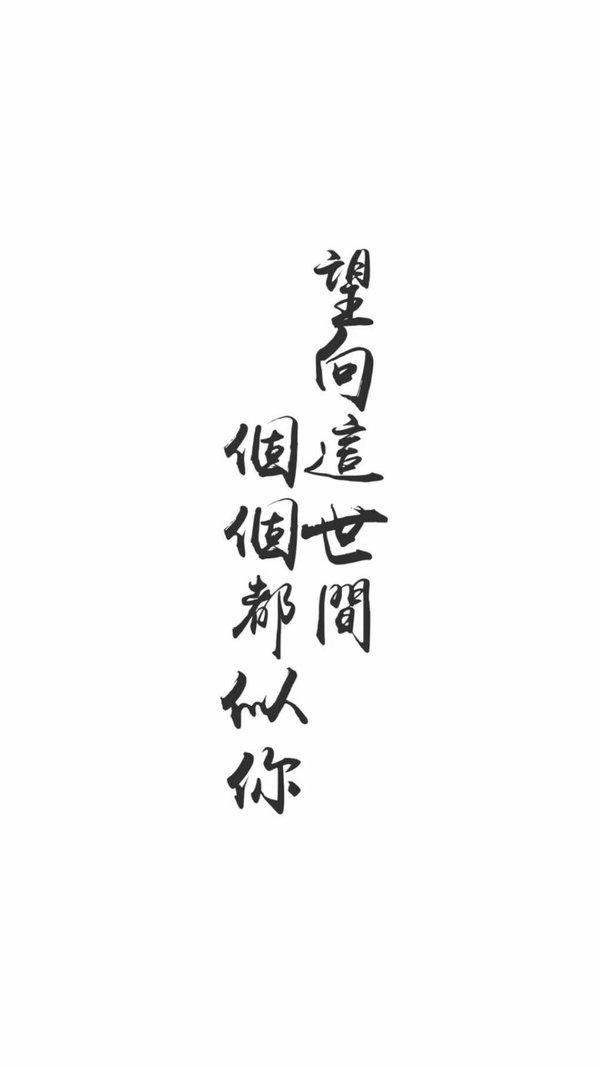 望向這世間
個個都似你